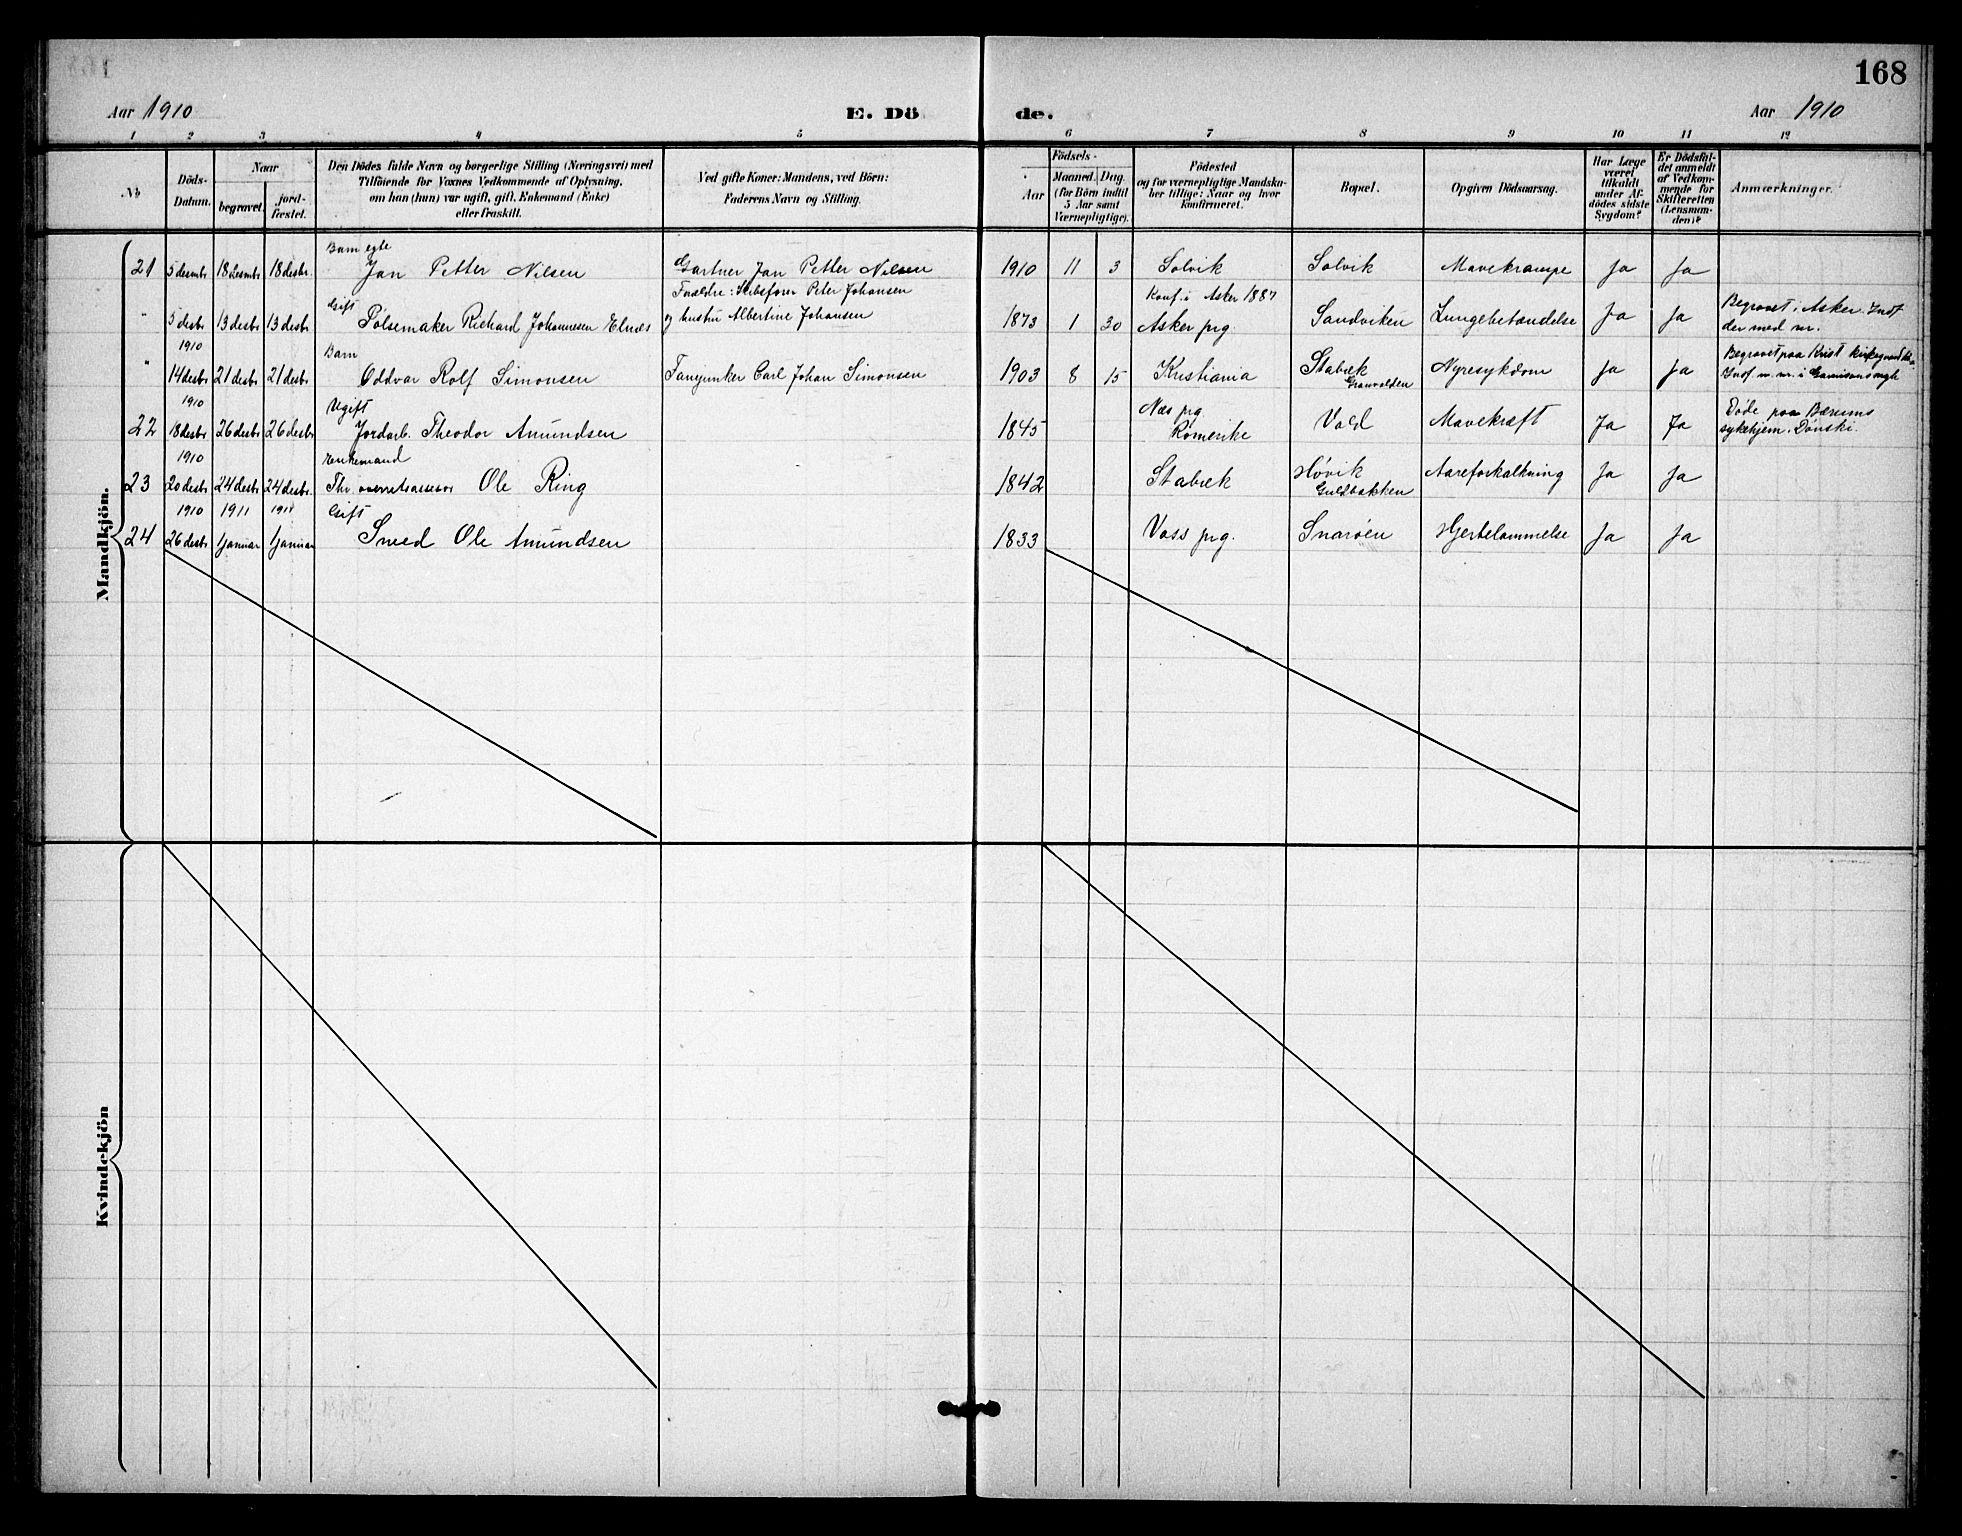 168
Aar 1910
E. Dö
de.
Aar 1910
1 2 3 4 5 6 7 8 9 10 11 12
No
Döds-Datum.
Naar
begravet.
jord-fæstet.
Den Dödes fulde Navn og borgerlige Stilling (Næringsvei) med
Tilföiende for Voxnes Vedkommende af Oplysning,
om han (hun) var ugift, gift, Enkemand (Enke)
eller fraskilt.
Ved gifte Koner: Mandens, ved Börn:
Faderens Navn og Stilling.
Födsels-
Aar
Maaned. Dag.
(for Börn indtil
5 Aar samt
Værnepligtige).
Födested
og for værnepligtige Mandska-
ber tillige: Naar og hvor
konfirmeret.
Bopæl.
Opgiven Dödsaarsag.
Har Læge
været
tilkaldt
under Af-
dödes sidste
Sygdom?
Er Dödsfal-
det anmeldt
af Vedkom-
mende for
Skifteretten
(Lensman-
den)?
Anmærkninger.
Mandkjön.
Barn egte
21 5 desmbr 18 desmbr 18 desbr. Jan Petter Nilsen Gartner Jan Petter Nilsen 1910 11 3 Solvik Solvik Mavekrampe Ja Ja
Forældre: Skibsfører Peter Johansen Konf. i Asker 1887
Gift
" 5 desbr 13 desbr 13 desbr Pølsemaker Richard Johannesen Elnæs og hustru Albertine Johansen 1873 1 30 Asker prg. Sandviken Lungebetændelse Ja Ja Begravet i Asker. Indf
der med nr.
1910 Barn
" 14 desbr 21 desbr 21 desbr Oddvar Rolf Simonsen Fanejunker Carl Johan Simonsen 1903 8 15 Kristiania Stabæk Nyresykdom Ja Ja Begravet paa Krist
Granvolden Indf m. nr. i
1910 Ugift Næs prg.
22 18 desbr 26 desbr 26 desbr Jordarb. Theodor Amundsen 1845 Romerike Vold Mavekræft Ja Ja Døde paa Bærums
sykehjem. Dønski.
1910 Enkemand
23 20 desbr 24 desbr 24 desbr. Fhv. overretsassessor Ole Ring 1842 Stabæk Høvik Aareforkalkning Ja Ja
Guldbakken
1910 1911 1911 Gift
24 26 desbr 1 januar 1 januar Smed Ole Amundsen 1833 Voss prg. Snarøen Hjertelammelse Ja Ja
Kvindekjön